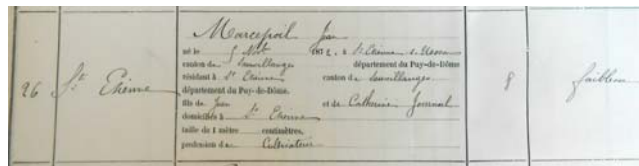 26 St Etienne
Marcepoil Jean
né le 5 Nov 1872, à St Etienne s. Usson
canton de Sauxillanges département du Puy-de-Dôme
résidant à St Etienne canton de Sauxillanges
département du Puy-de-Dôme.
fils de Jean et de Catherine Journal
domiciliés à St Etienne
taille de 1 mètre centimètres,
profession de Cultivateur
8
faiblesse